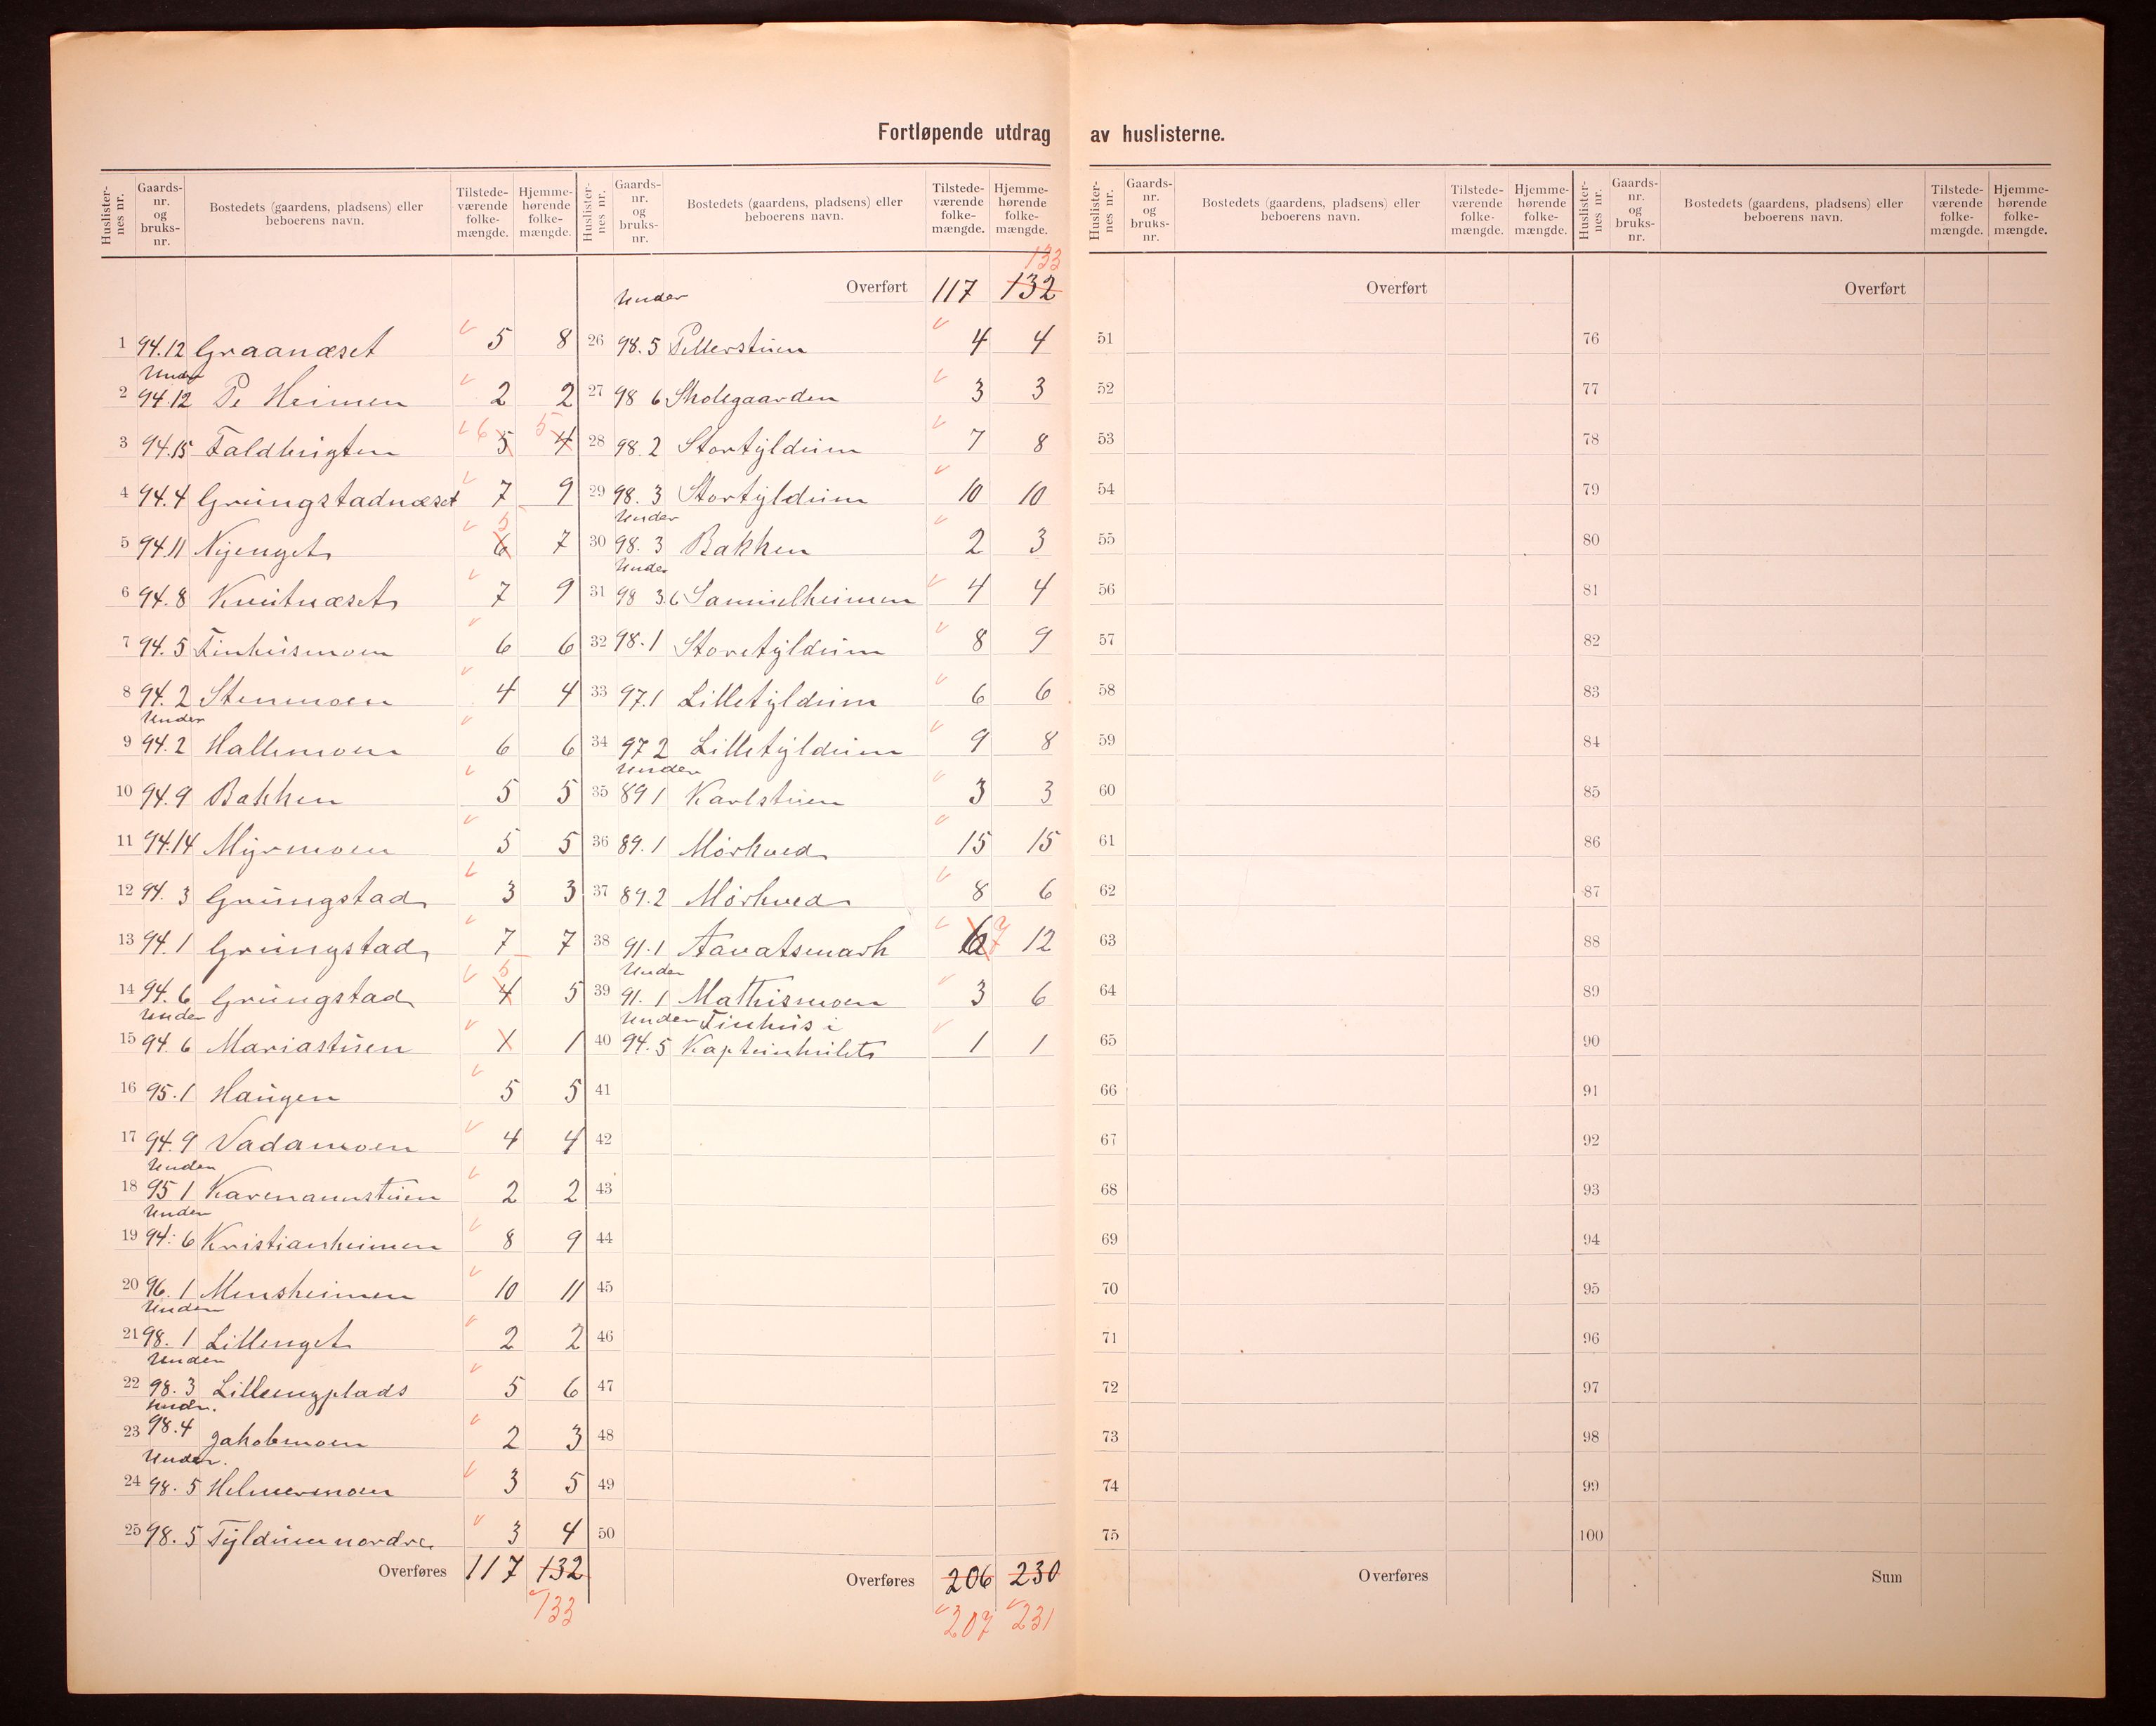 Fortløpende utdrag av huslisterne.
Huslister-nes nr. Gaards-nr. og bruks-nr. Bostedets (gaardens, pladsens) eller beboerens navn. Tilstede-værende folke-mængde. Hjemme-hørende folke-mængde.
1 94.12 Graanæset 5 8
Under
2 94.12 Pe Heimen 2 2
3 94.15 Faldhugten 6 5 5 4
4 94.4 Grungstadnæset 7 9
5
5 94.11 Nyenget 6 7
6 94.8 Kvitnæset 7 9
7 94.5 Finhusmoen 6 6
8 94.2 Stenmoen 4 4
Under
9 94.2 Hallemoen 6 6
10 94.9 Bakken 5 5
11 94.14 Myrmoen 5 5
12 94.3 Grungstad 3 3
13 94.1 Grungstad 7 7
5
14 94.6 Grungstad 4 5
Under
15 94.6 Mariastuen 1 1
16 95.1 Haugen 5 5
17 94.9 Vadamoen 4 4
Under
18 95 1 Karenannstuen 2 2
Under
19 94.6 Kristianheimen 8 9
20 96.1 Mensheimen 10 11
Under
21 98.1 Lillenget 2 2
Under
22 98.3 Lillengplads 5 6
Under.
23 98.4 Jakobmoen 2 3
Under.
24 98.5 Helmermoen 3 5
25 98.5 Tyldum nordre 3 4
Overføres 117 132
133
Huslister-nes nr. Gaards-nr. og bruks-nr. Bostedets (gaardens, pladsens) eller beboerens navn. Tilstede-værende folke-mængde. Hjemme-hørende folke-mængde.
133
Overført 117 132
Under
26 98.5 Pellerstuen 4 4
27 98 6 Skolegaarden 3 3
28 98.2 Stortyldum 7 8
29 98.3 Stortyldum 10 10
Under
30 98.3 Bakken 2 3
Under
31 98 3.6 Samuelheimen 4 4
32 98.1 Storetyldum 8 9
33 97.1 Lilletyldum 6 6
34 97 2 Lilletyldum 9 8
Under
35 89 1 Karlstuen 3 3
36 89.1 Mørkved 15 15
37 89.2 Mørkved 8 6
38 91.1 Aavatsmark 6 7 12
Under
39 91.1 Mathismoen 3 6
Under Finhus i
40 94.5 Kapteinhvilets 1 1
41
42
43
44
45
46
47
48
49
50
Overføres 206 230
207 231
Huslister-nes nr. Gaards-nr. og bruks-nr. Bostedets (gaardens, pladsens) eller beboerens navn. Tilstede-værende folke-mængde. Hjemme-hørende folke-mængde.
Overført
51
52
53
54
55
56
57
58
59
60
61
62
63
64
65
66
67
68
69
70
71
72
73
74
75
Overføres
Huslister-nes nr. Gaards-nr. og bruks-nr. Bostedets (gaardens, pladsens) eller beboerens navn. Tilstede-værende folke-mængde. Hjemme-hørende folke-mængde.
Overført
76
77
78
79
80
81
82
83
84
85
86
87
88
89
90
91
92
93
94
95
96
97
98
99
100
Sum